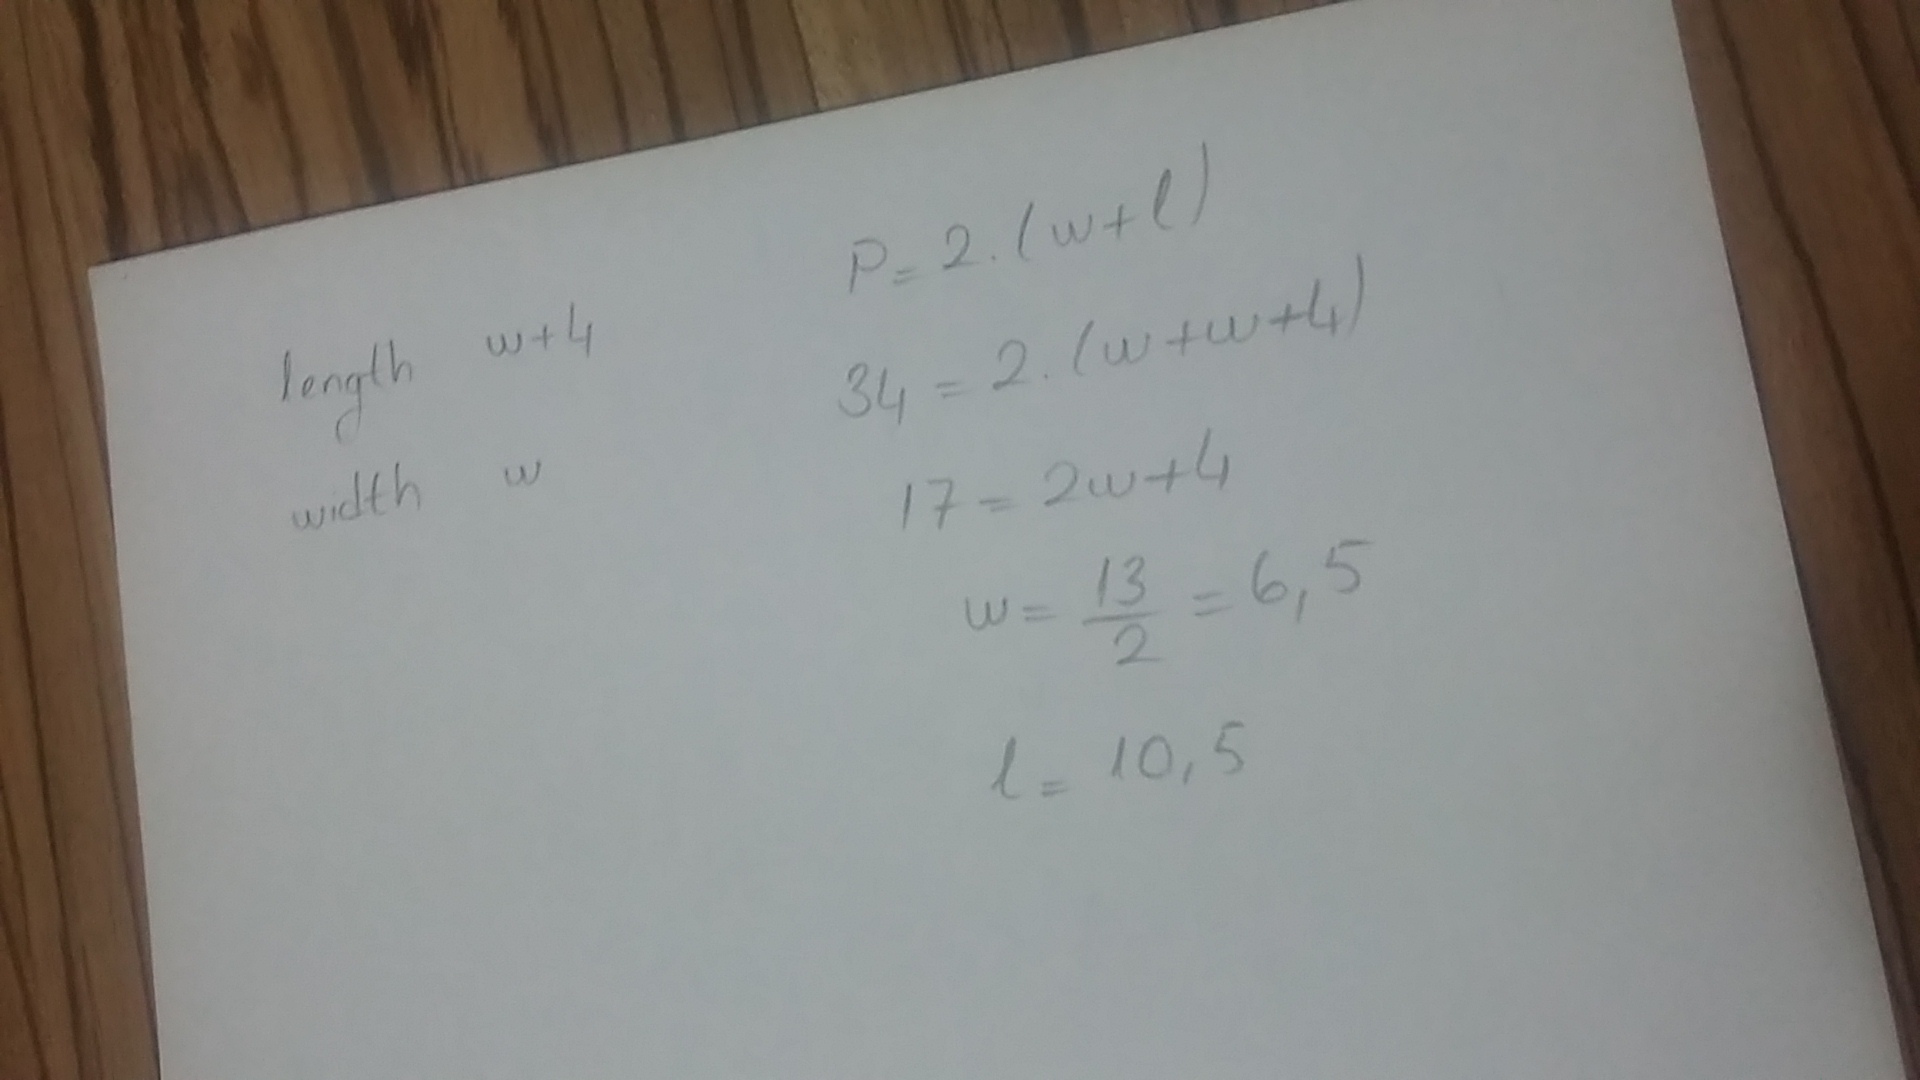 length w+4
width w
P=2.(w+l)
34=2.(w+w+4)
17=2w+4
w=13/2=6,5
l=10,5